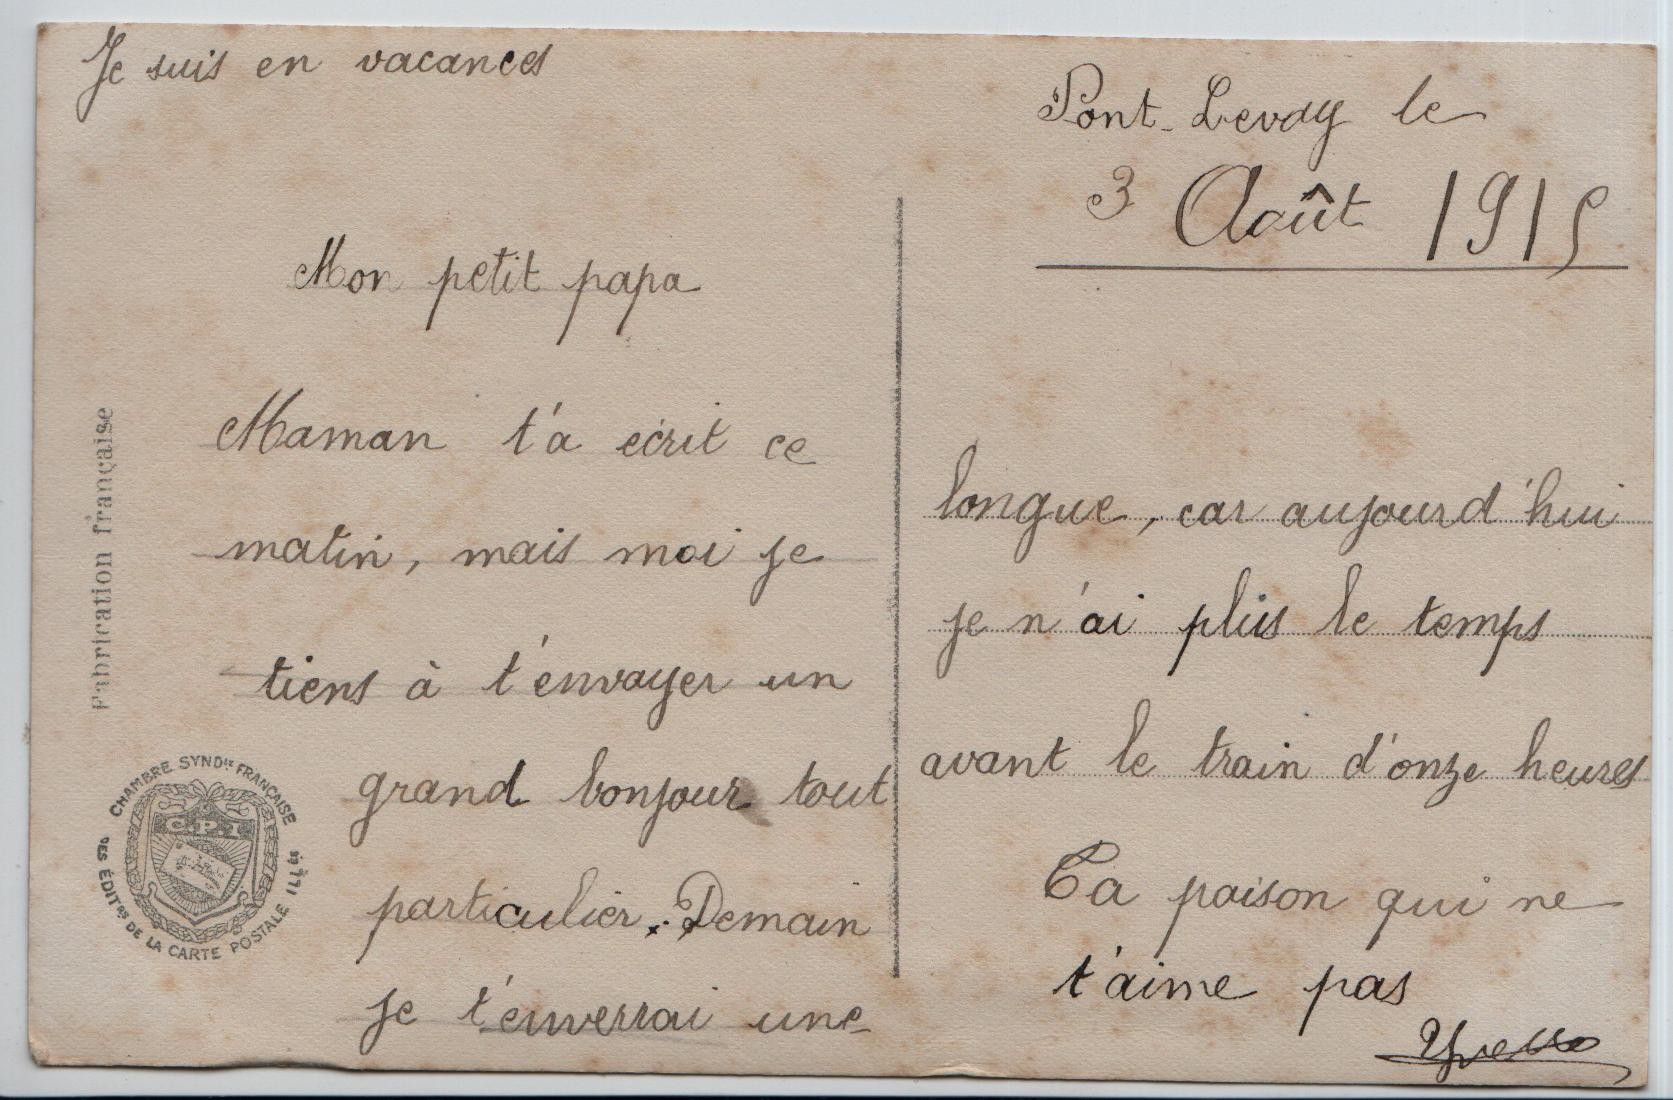 Je suis en vacances
Pont-Levoy le
3 Août 1915
Mon petit papa
Maman t'a écrit ce
matin, mais moi je
tiens à t'envoyer un
grand bonjour tout
particulier. Demain
je t'enverrai une
longue, car aujourd'hui
je n'ai plus le temps
avant le train d'onze heures
Ta poison qui ne
t'aime pas
Fabrication française
CHAMBRE SYND.le FRANÇAISE
DES ÉDIT.RS DE LA CARTE POSTALE ILL.ée
C.P.I